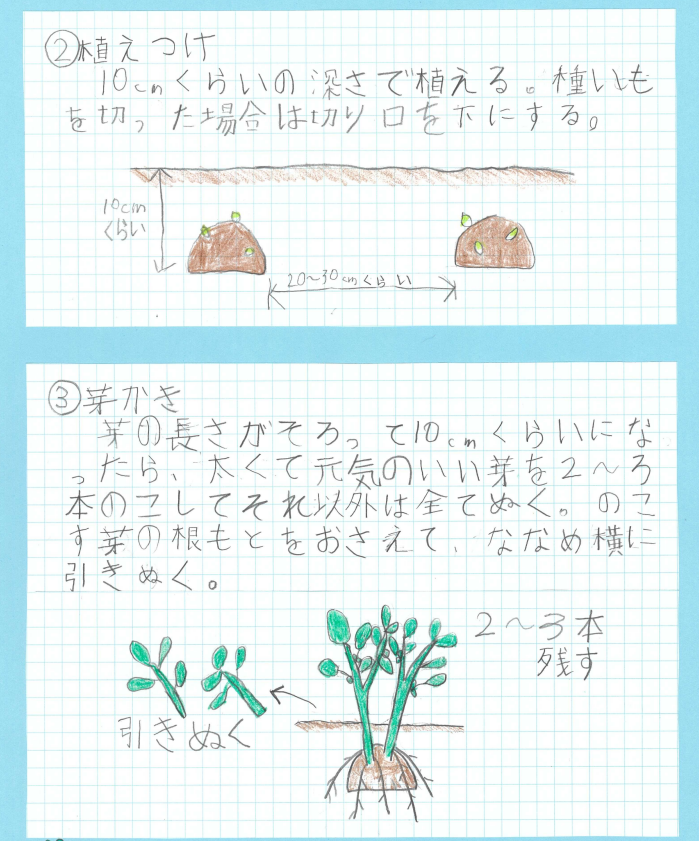 ②植えつけ
10cmくらいの深さで植える。種いも
を切った場合は切り口を下にする。
10cm
くらい
20～30cmくらい
③芽かき
芽の長さがそろって10cmくらいにな
ったら、太くて元気のいい芽を2～3
本のこしてそれ以外は全てぬく。のこ
す芽の根もとをおさえて、ななめ横に
引きぬく。
2～3本
残す
引きぬく